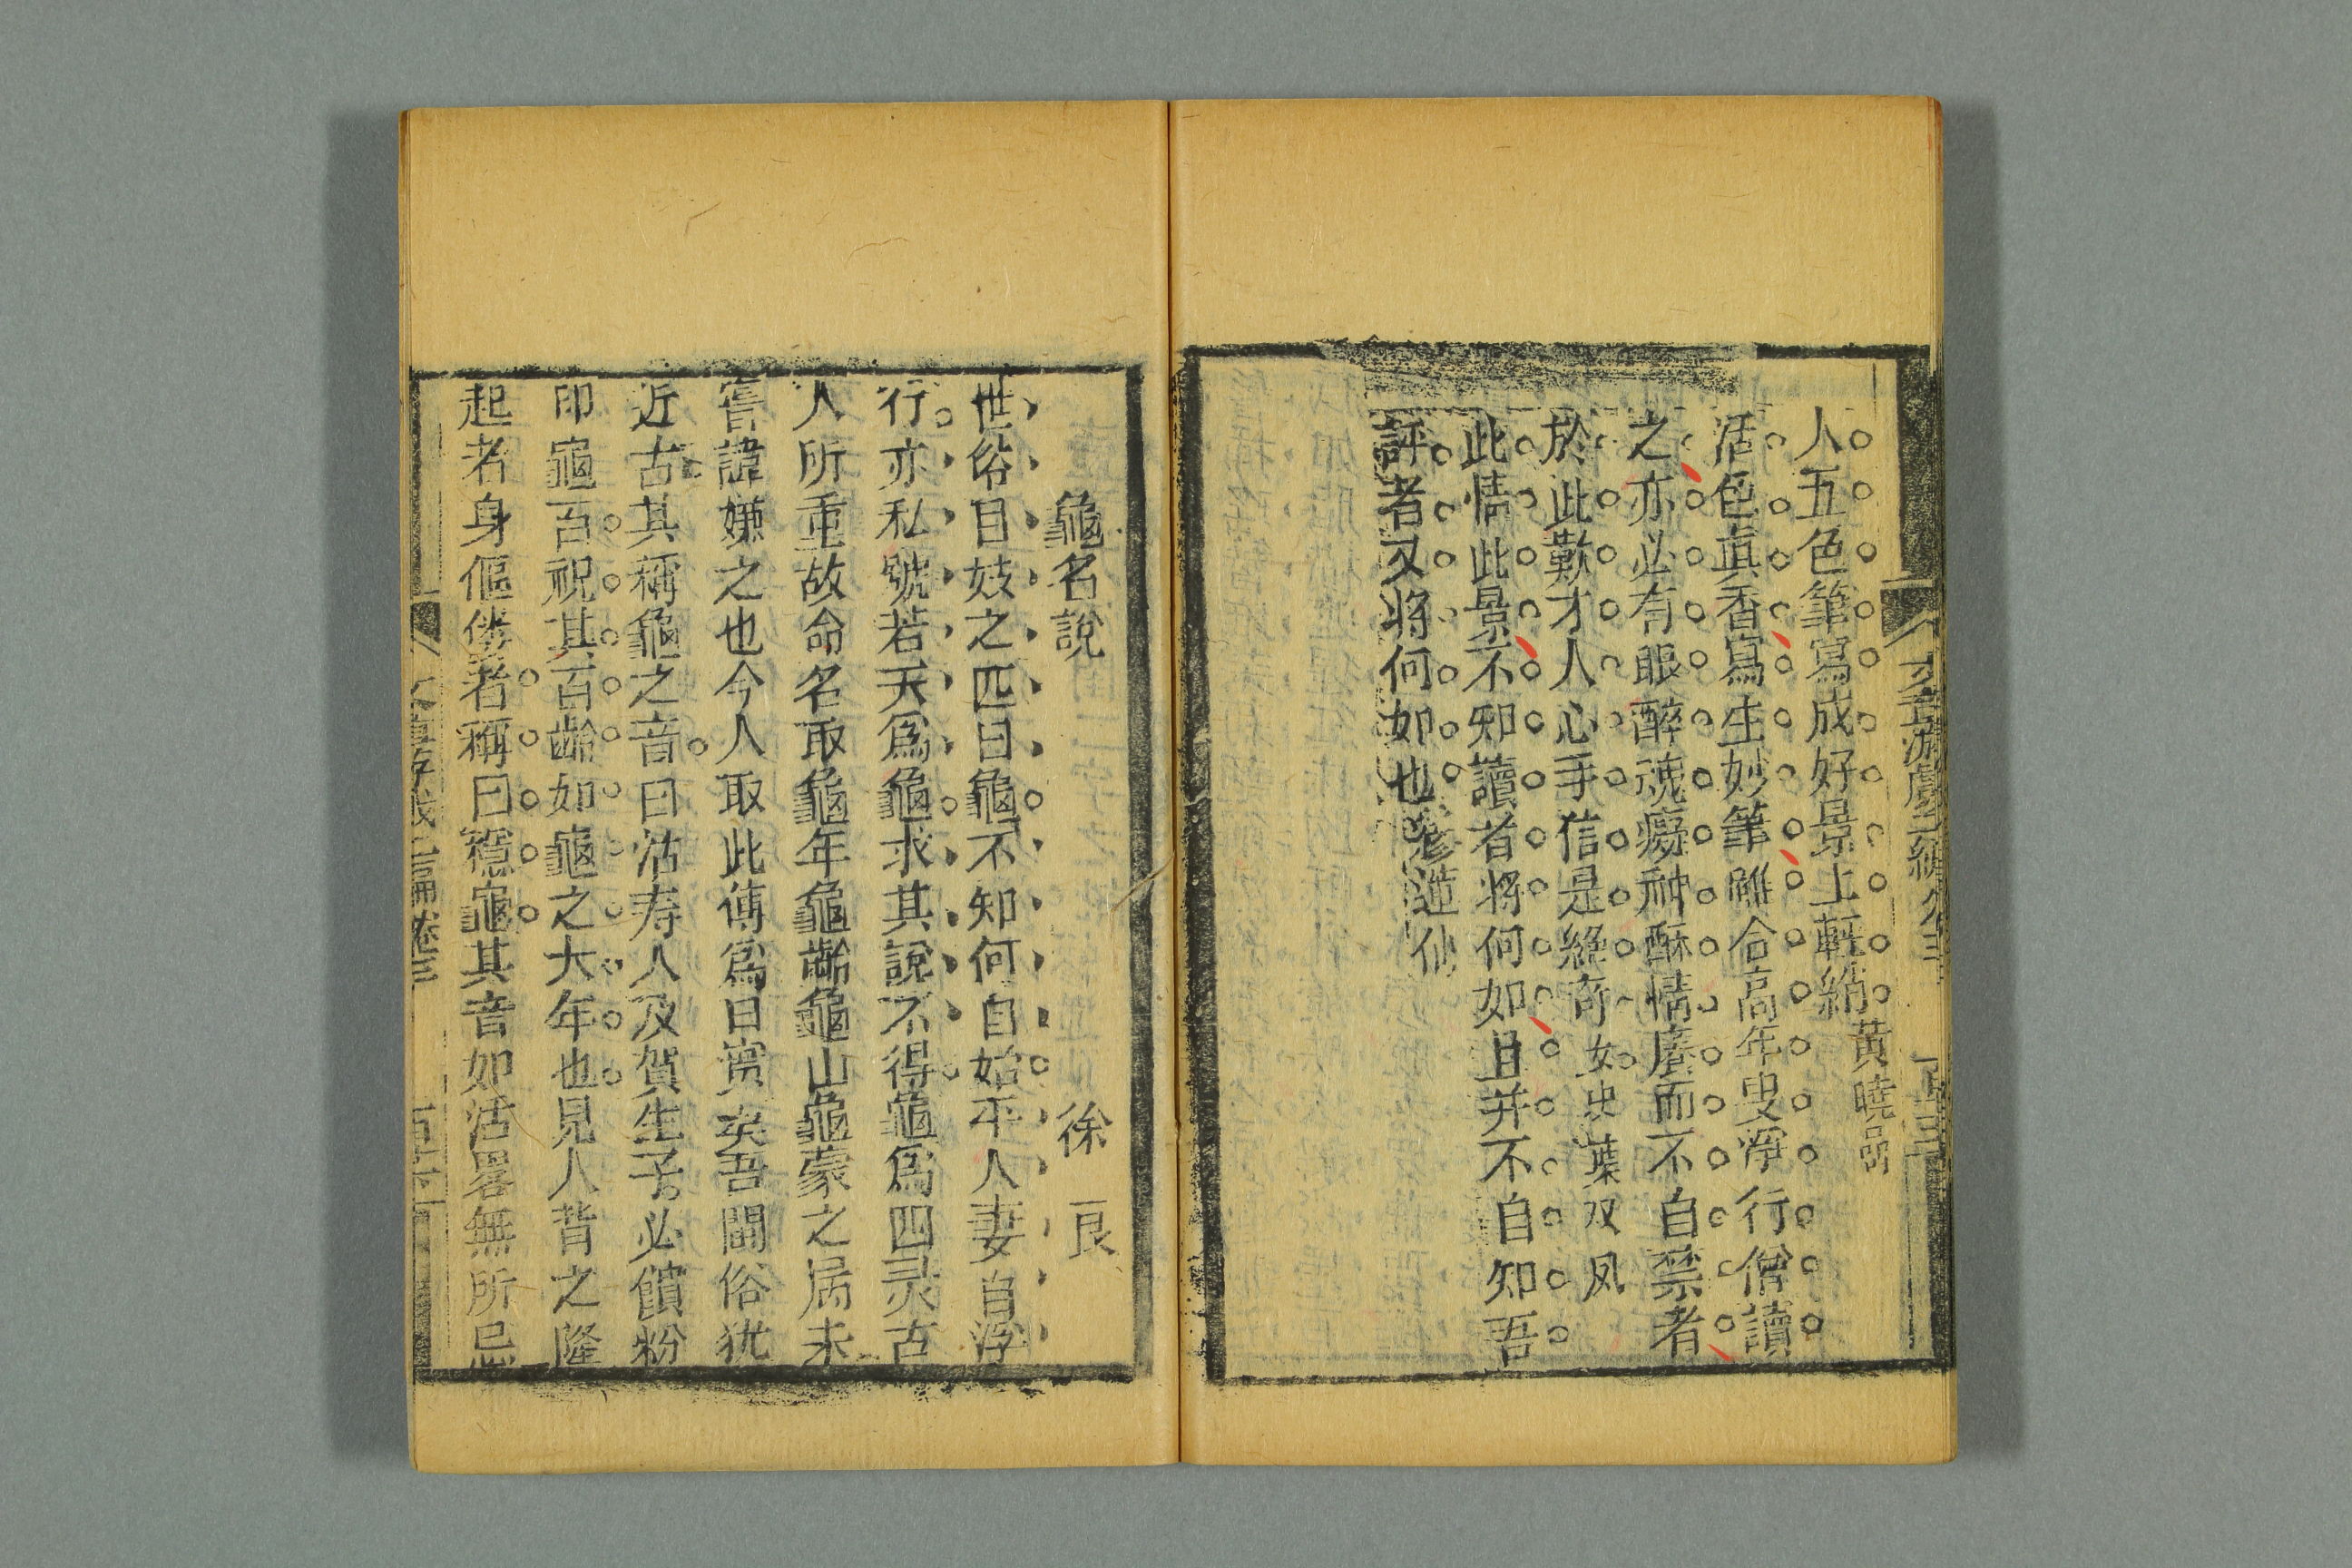 人五色筆寫成好景上輕綃黃曉品
活色真香寫生妙筆離合高年叟淨行僧讀
之亦必有眼醉魂癡神酥情麋而不自禁者
於此歎才人心手信是絕奇女史葉双凤
此情此景不知讀者將何如且并不自知吾
評者又將何如也 蓮仙
龜名說 徐 良
世俗目妓之匹曰龜不知何自始乎人妻自浮
行亦私號若天爲龜求其說不得龜爲四灵古
人所重故命名取龜年龜齡龜山龜蒙之属未
嘗諱嫌之也今人取此傳爲口實矣吾聞俗犹
近古其稱龜之音曰沽寿人及賀生子必饋粉
印龜百祝其百齡如龜之大年也見人背之隆
起者身傴僂者稱曰穏龜其音如活畧無所忌